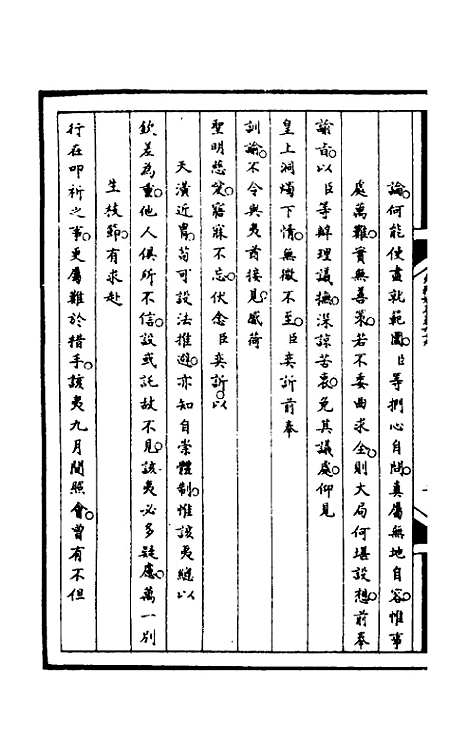 論何能使盡就範圍臣等捫心自問真屬無地自容惟事
處萬難實無善策若不委曲求全則大局何堪設想前奉
諭旨以臣等辦理議撫深諒苦衷免其議處仰見
皇上洞燭下情無微不至臣奕訢前奉
訓諭不令與夷酋接見感荷
聖明慈愛寤寐不忘伏念臣奕訢以
天潢近胄苟可設法推避亦知自崇體制惟該夷總以
欽差為重他人俱所不信設或託故不見該夷必多疑慮萬一別
生枝節有求赴
行在叩祈之事更屬難於措手該夷九月間照會曾有不但